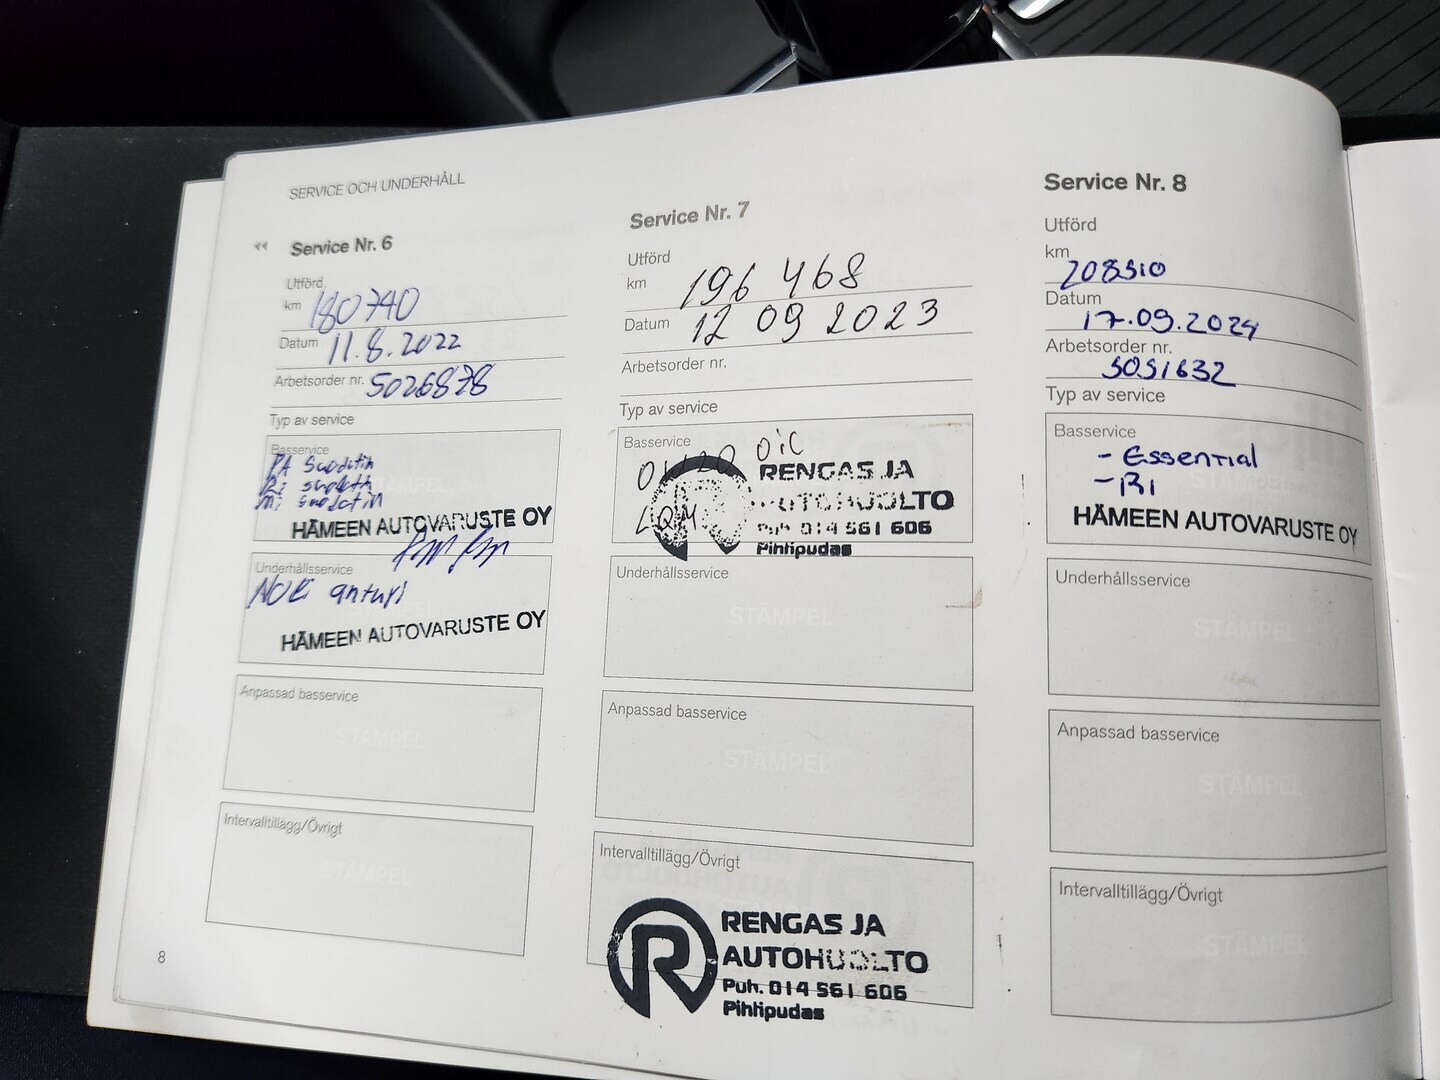 SERVICE OCH UNDERHÅLL
Service Nr. 6
Utförd
km 180740
Datum 11.8.2022
Arbetsorder nr. 5026878
Typ av service
Basservice
PA Suodatin
Ri suodatin
Mi suodatin
HÄMEEN AUTOVARUSTE OY
Underhållsservice
NOKi anturi
HÄMEEN AUTOVARUSTE OY
Anpassad basservice
STÄMPEL
Intervalltillägg/Övrigt
STÄMPEL
8
Service Nr. 7
Utförd
km 196 468
Datum 12 09 2023
Arbetsorder nr.
Typ av service
Basservice
OiL
RENGAS JA
AUTOHUOLTO
Puh. 014 561 606
Pihtipudas
Underhållsservice
STÄMPEL
Anpassad basservice
STÄMPEL
Intervalltillägg/Övrigt
RENGAS JA
AUTOHUOLTO
Puh. 014 561 606
Pihtipudas
Service Nr. 8
Utförd
km 208510
Datum 17.09.2024
Arbetsorder nr.
5051632
Typ av service
Basservice
- Essential
- Ri
STÄMPEL
HÄMEEN AUTOVARUSTE OY
Underhållsservice
STÄMPEL
Anpassad basservice
STÄMPEL
Intervalltillägg/Övrigt
STÄMPEL